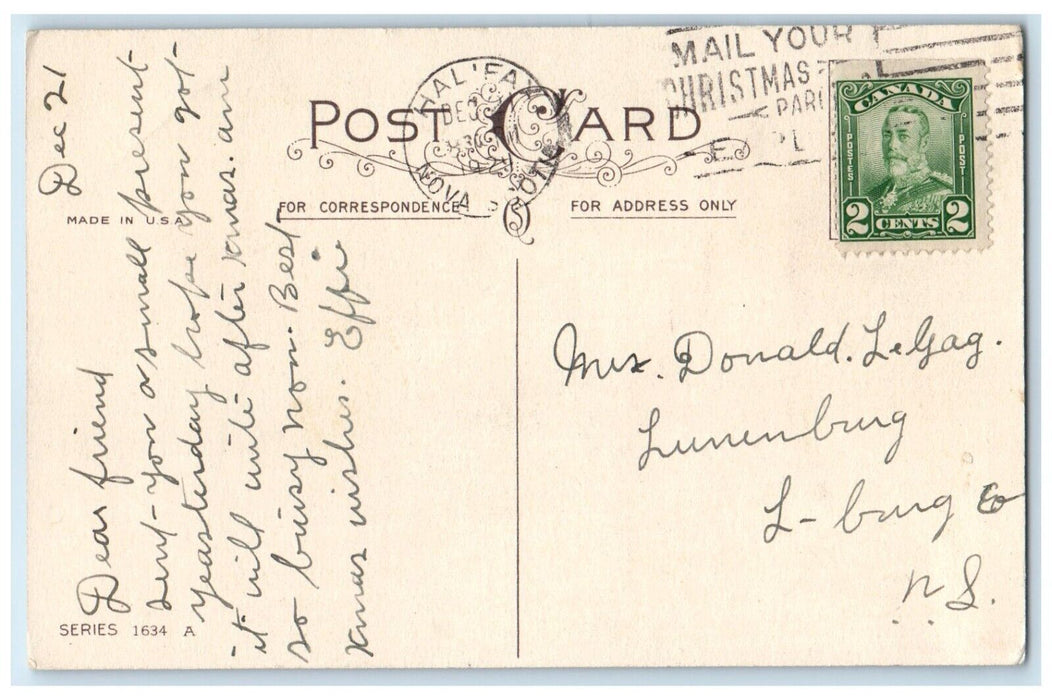 POST CARD
HALIFAX
DEC
NOVA SCOTIA
MAIL YOUR
CHRISTMAS
PARC
E PL
CANADA
POSTES
POST
2 CENTS 2
MADE IN U.S.A.
FOR CORRESPONDENCE
FOR ADDRESS ONLY
Dec 21
Dear friend
sent you a small present
yeasterday hope you got
it will write after xmas. am
so buisy now. Best
xmas wishes. Effie
Mrs. Donald. LeGag.
Lunenburg
L-burg Co
N S.
SERIES 1634 A